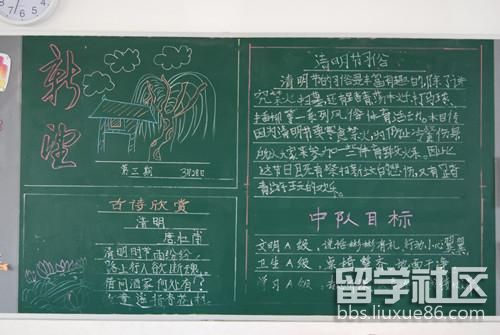 新望
第三期 3月28日
古诗欣赏
清明
唐杜甫
清明时节雨纷纷
路上行人欲断魂
借问酒家何处有?
童遥指杏花村
清明节习俗
清明节的习俗是丰富有趣的,除了讲
究禁火、扫墓,还有踏青、荡秋千、打马球、
插柳等一系列风俗体育活动。
因为清明节要寒食禁火,为了防止
所以大家来参加一些体育锻炼。因此
这节日既有祭扫新坟的悲伤,又有踏
青游玩的欢乐。
中队目标
文明A级,说话彬彬有礼,行动小心翼翼
卫生A级,桌椅整齐,地面干净
学习A级,
留学社区
bbs.liuxue86.com